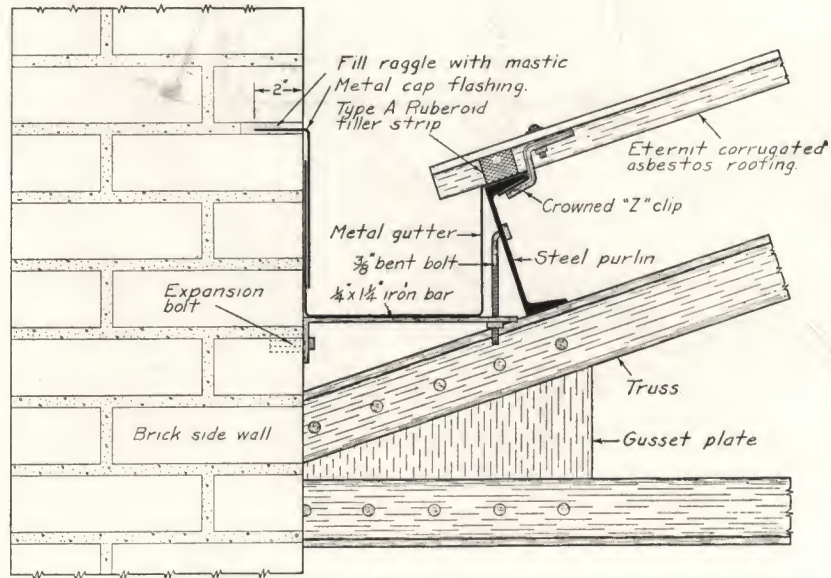 Fill raggle with mastic
2"
Metal cap flashing.
Type A Ruberoid
filler strip
Eternit corrugated
asbestos roofing.
Crowned "Z" clip
Metal gutter
3/8" bent bolt
Steel purlin
1/4" x 1 1/4" iron bar
Expansion
bolt
Truss
Brick side wall
Gusset plate